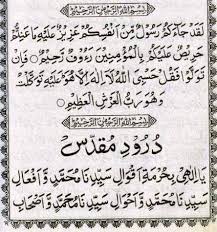 بِسْمِ اللهِ الرَّحْمٰنِ الرَّحِيْمِ
لَقَدْ جَآءَكُمْ رَسُوْلٌ مِّنْ اَنْفُسِكُمْ عَزِيْزٌ عَلَيْهِ مَاعَنِتُّمْ
حَرِيْصٌ عَلَيْكُمْ بِالْمُؤْمِنِيْنَ رَءُوْفٌ رَّحِيْمٌ ○ فَاِنْ
تَوَلَّوْا فَقُلْ حَسْبِيَ اللهُ لَآ اِلٰهَ اِلَّا هُوَ عَلَيْهِ تَوَكَّلْتُ
وَهُوَ رَبُّ الْعَرْشِ الْعَظِيْمِ ○
بِسْمِ اللهِ الرَّحْمٰنِ الرَّحِيْمِ
دُرُودِ مُقَدَّسْ
يَا اِلٰهِيْ بِحُرْمَةِ اَقْوَالِ سَيِّدِنَا مُحَمَّدٍ وَّ اَفْعَالِ
سَيِّدِنَا مُحَمَّدٍ وَّ اَحْوَالِ سَيِّدِنَا مُحَمَّدٍ وَّ اَصْحَابِ